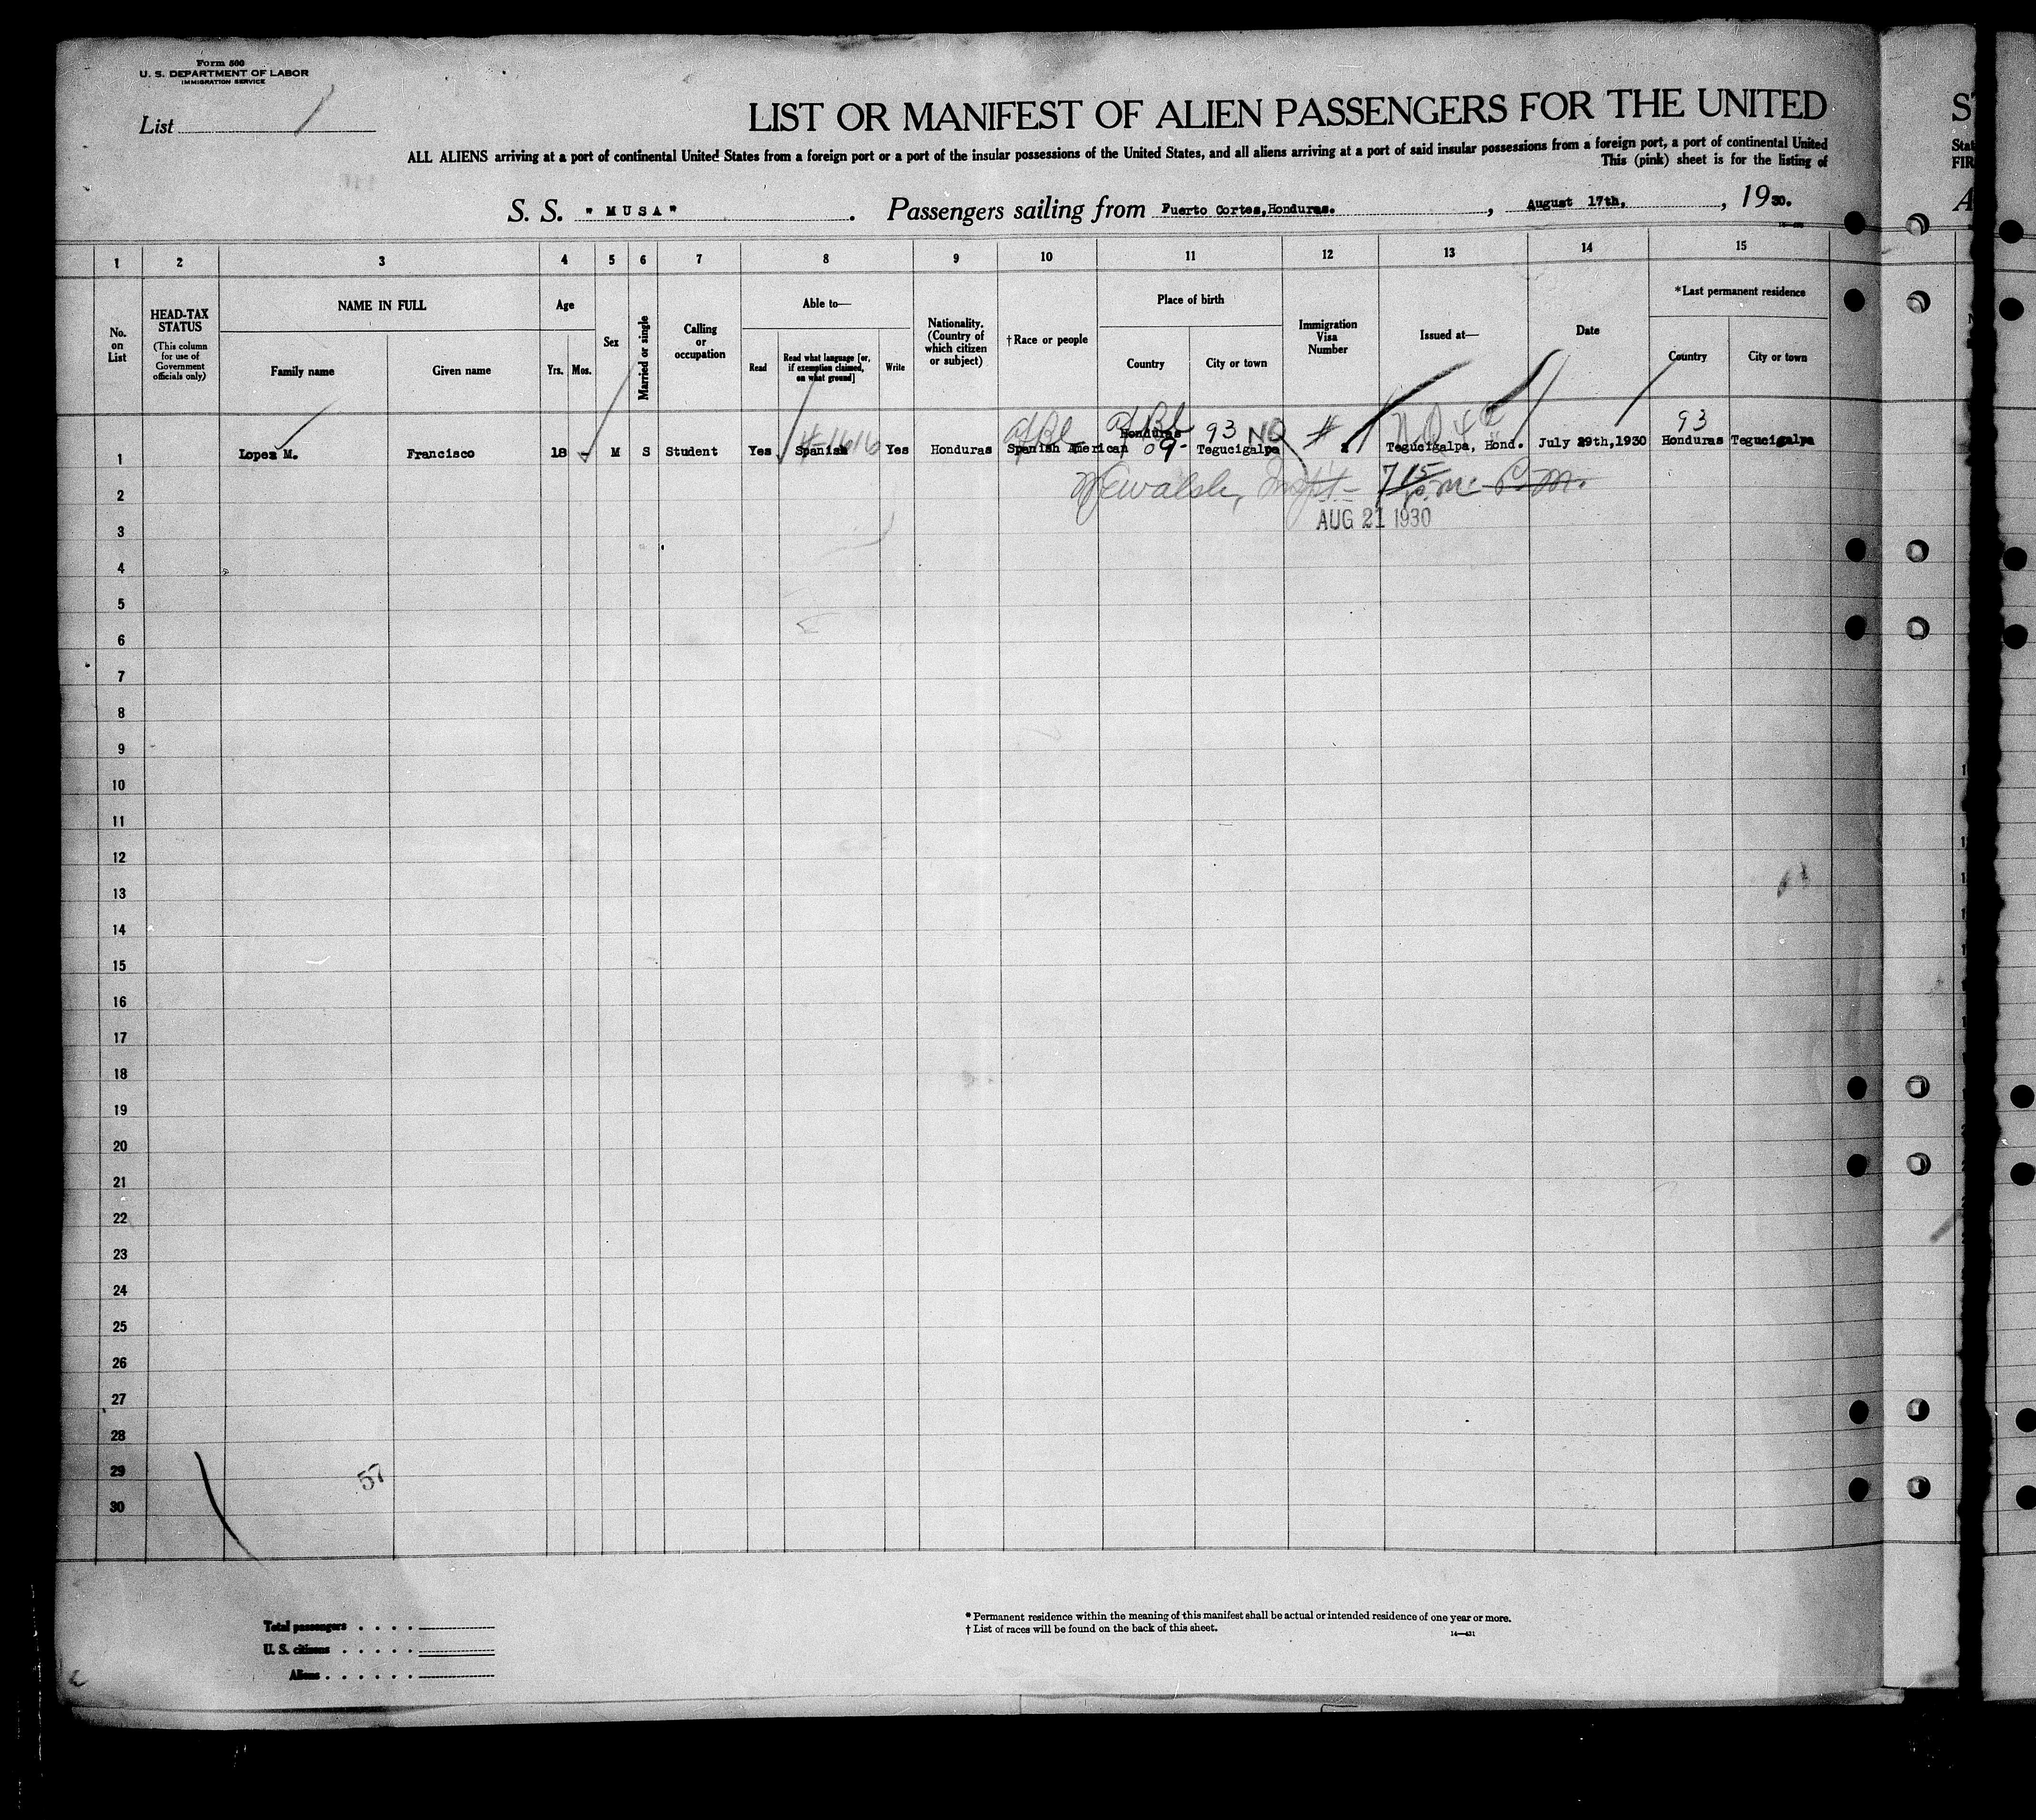 Form 500
U. S. DEPARTMENT OF LABOR
IMMIGRATION SERVICE
List 1
LIST OR MANIFEST OF ALIEN PASSENGERS FOR THE UNITED
ALL ALIENS arriving at a port of continental United States from a foreign port or a port of the insular possessions of the United States, and all aliens arriving at a port of said insular possessions from a foreign port, a port of continental United
This (pink) sheet is for the listing of
S. S. "MUSA". Passengers sailing from Puerto Cortes, Honduras., August 17th, , 1930.
1 2 3 4 5 6 7 8 9 10 11 12 13 14 15
No. on List
HEAD-TAX STATUS (This column for use of Government officials only)
NAME IN FULL
Family name
Given name
Age
Yrs. Mos.
Sex
Married or single
Calling or occupation
Able to—
Read
Read what language [or, if exemption claimed, on what ground]
Write
Nationality. (Country of which citizen or subject)
†Race or people
Place of birth
Country
City or town
Immigration Visa Number
Issued at—
Date
*Last permanent residence
Country
City or town
93 NQ 93
1 Lopez M. Francisco 18 - M S Student Yes Spanish Yes Honduras Spanish American Honduras 09- Tegucigalpa Tegucigalpa, Hond. July 29th, 1930 Honduras Tegucigalpa
2 7 15 P.M.
AUG 21 1930
3
4
5
6
7
8
9
10
11
12
13
14
15
16
17
18
19
20
21
22
23
24
25
26
27
28
29
57
30
Total passengers . . . .
U. S. citizens . . . . .
Aliens . . . . . .
* Permanent residence within the meaning of this manifest shall be actual or intended residence of one year or more.
† List of races will be found on the back of this sheet.
14—431